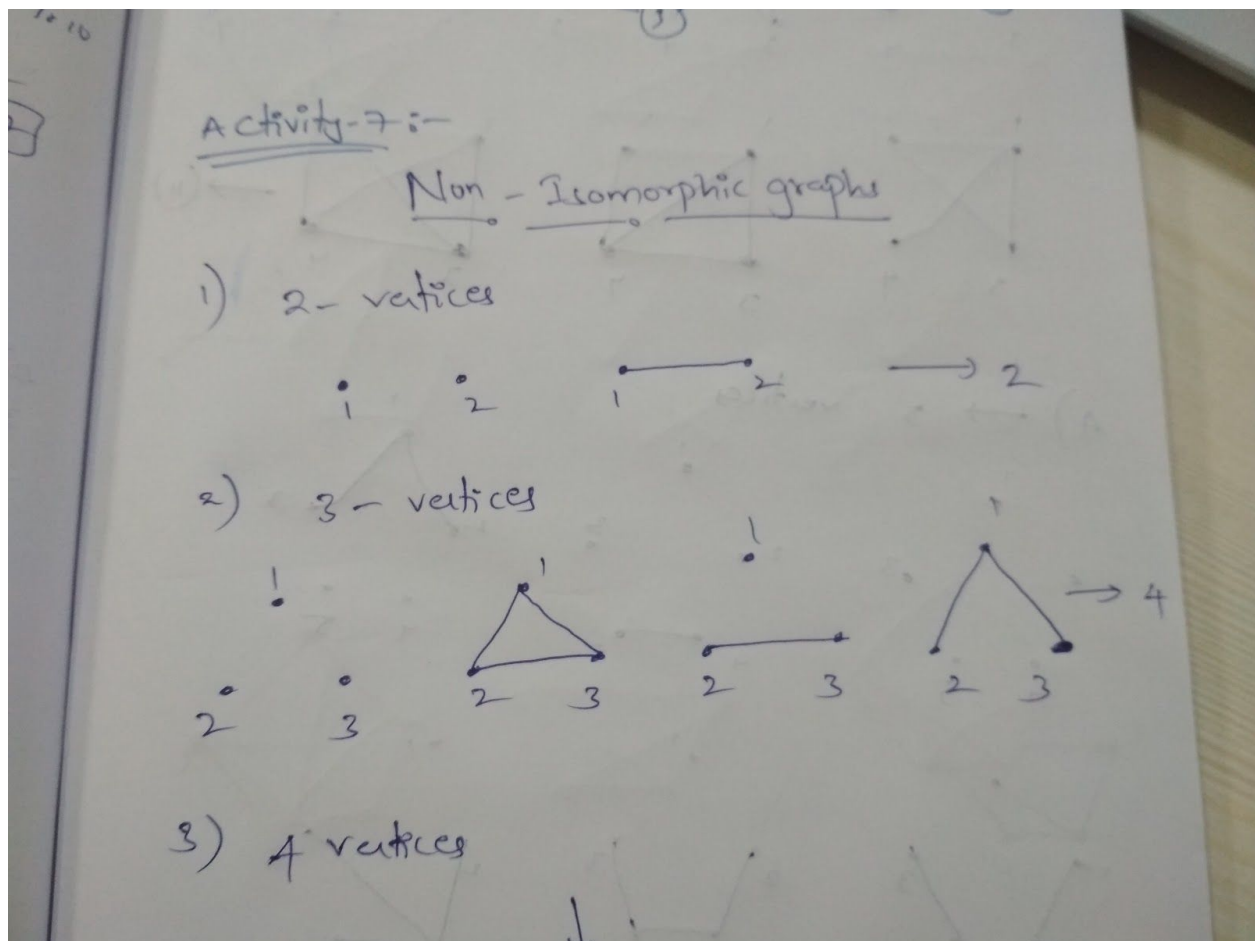 Activity-7:-
Non - Isomorphic graphs
1) 2- vertices
1 2 1 2 → 2
2) 3- vertices
1 1 1 1
2 3 2 3 2 3 2 3 → 4
3) 4 vertices